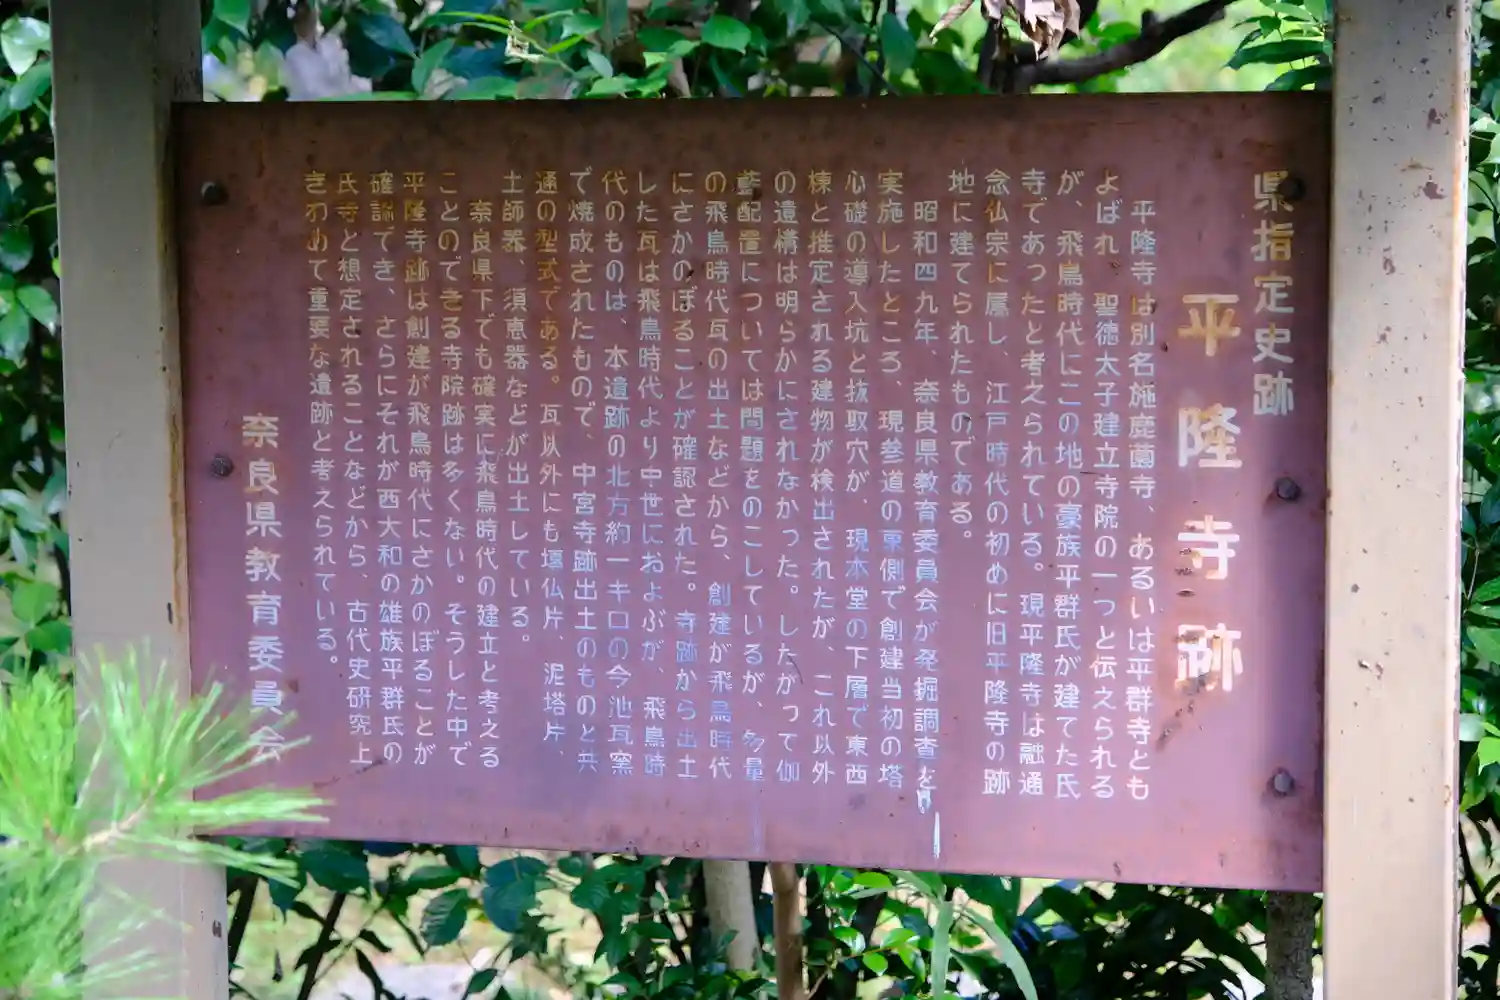 県指定史跡
平隆寺跡
平隆寺は別名施鹿薗寺、あるいは平群寺とも
よばれ、聖徳太子建立寺院の一つと伝えられる
が、飛鳥時代にこの地の豪族平群氏が建てた氏
寺であったと考えられている。現平隆寺は融通
念仏宗に属し、江戸時代の初めに旧平隆寺の跡
地に建てられたものである。
昭和四九年、奈良県教育委員会が発掘調査を
実施したところ、現参道の東側で創建当初の塔
心礎の導入坑と抜取穴が、現本堂の下層で東西
棟と推定される建物が検出されたが、これ以外
の遺構は明らかにされなかった。したがって伽
藍配置については問題をのこしているが、多量
の飛鳥時代瓦の出土などから、創建が飛鳥時代
にさかのぼることが確認された。寺跡から出土
した瓦は飛鳥時代より中世におよぶが、飛鳥時
代のものは、本遺跡の北方約一キロの今池瓦窯
で焼成されたもので、中宮寺跡出土のものと共
通の型式である。瓦以外にも塼仏片、泥塔片、
土師器、須恵器などが出土している。
奈良県下でも確実に飛鳥時代の建立と考える
ことのできる寺院跡は多くない。そうした中で
平隆寺跡は創建が飛鳥時代にさかのぼることが
確認でき、さらにそれが西大和の雄族平群氏の
氏寺と想定されることなどから、古代史研究上
きわめて重要な遺跡と考えられている。
奈良県教育委員会